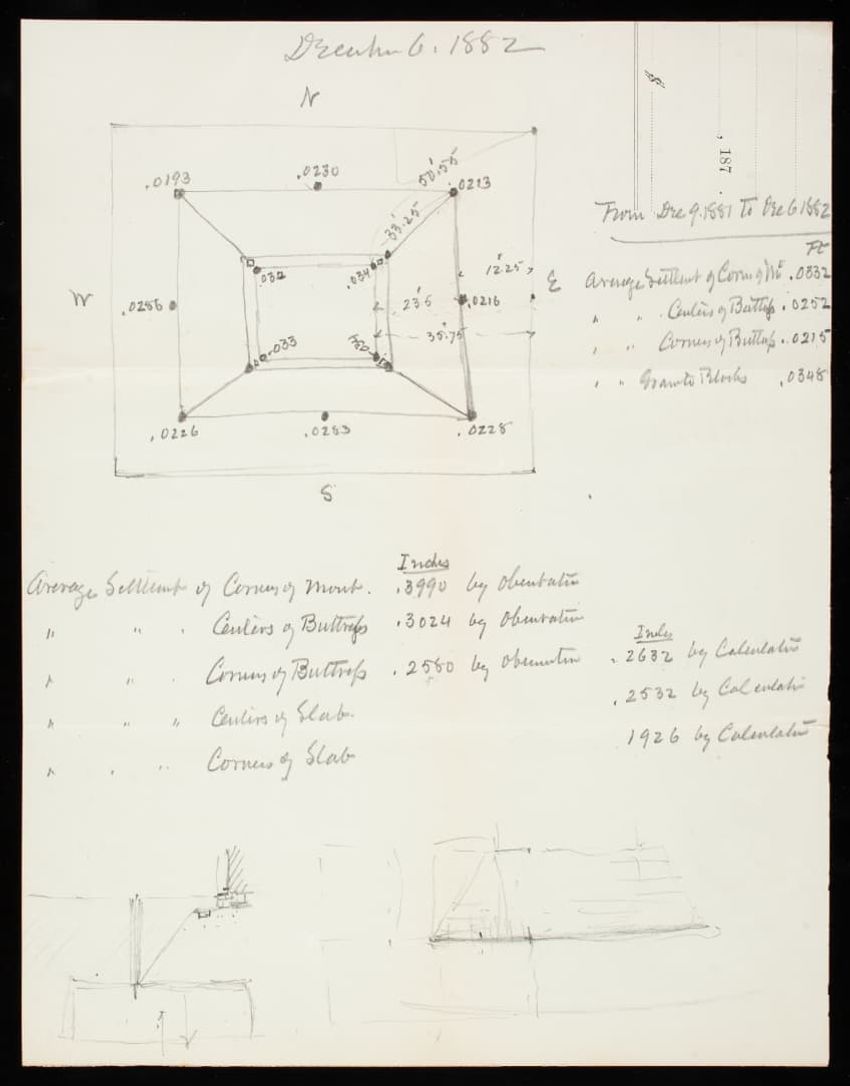 December 6. 1882
N
, 187 .
$
.0193
.0230
.0213
50'.56
33'.25
From Dec 9. 1881 To Dec 6 1882
Ft
.034
12'.25
E
Average Settlement of Corners of Mt .0332
W
.0256
23'5
.0216
" " Centers of Buttress .0252
35'.75
" " Corners of Buttress .0215
.033
" " Granite Blocks .0348
.0226
.0283
.0228
S
Inches
Average Settlement of Corners of Mont. .3990 by Observation
" " " Centers of Buttress .3024 by Observation
Inches
" " " Corners of Buttress .2580 by Observation .2632 by Calculation
" " " Centers of Slab. .2532 by Calculation
" " " Corners of Slab 1926 by Calculation